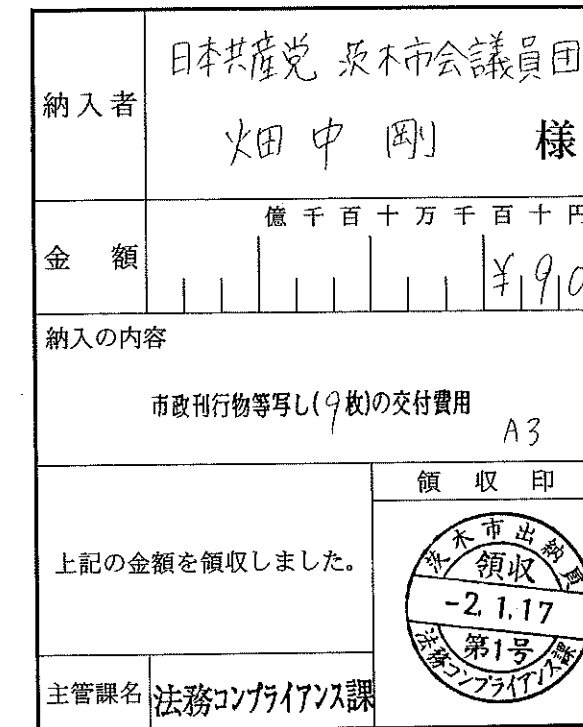 日本共産党 茨木市会議員団
納入者
畑中 剛 様
億千百十万千百十円
金額 ¥90
納入の内容
市政刊行物等写し(9枚)の交付費用
A3
領収印
上記の金額を領収しました。
茨木市出納員
領収
-2.1.17
第1号
法務コンプライアンス課
主管課名 法務コンプライアンス課